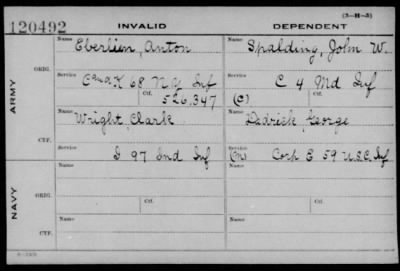 (3-H-3)
120492 INVALID DEPENDENT
Name Eberlien, Anton Name Spalding, John W.
ORIG.
Service C and K 68 N.Y. Inf Service C 4 Md Inf
Ctf. 526,347 (C) Ctf.
ARMY
Name Wright, Clark Name Dedrick, George
CTF.
Service D 97 Ind Inf Service (M) Corp E 59 U.S.C. Inf
Name Name
ORIG.
Service Ctf. Service Ctf.
NAVY
Name Name
CTF.